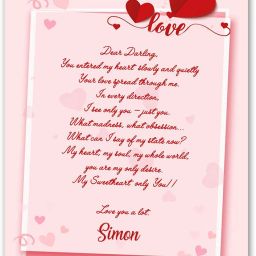 love
Dear Darling,
You entered my heart slowly and quietly
Your love spread through me.
In every direction,
I see only you – just you.
What madness, what obsession...
What can I say of my state now?
My heart, my soul, my whole world,
you are my only desire.
My Sweetheart only You!!
Love you a lot.
Simon